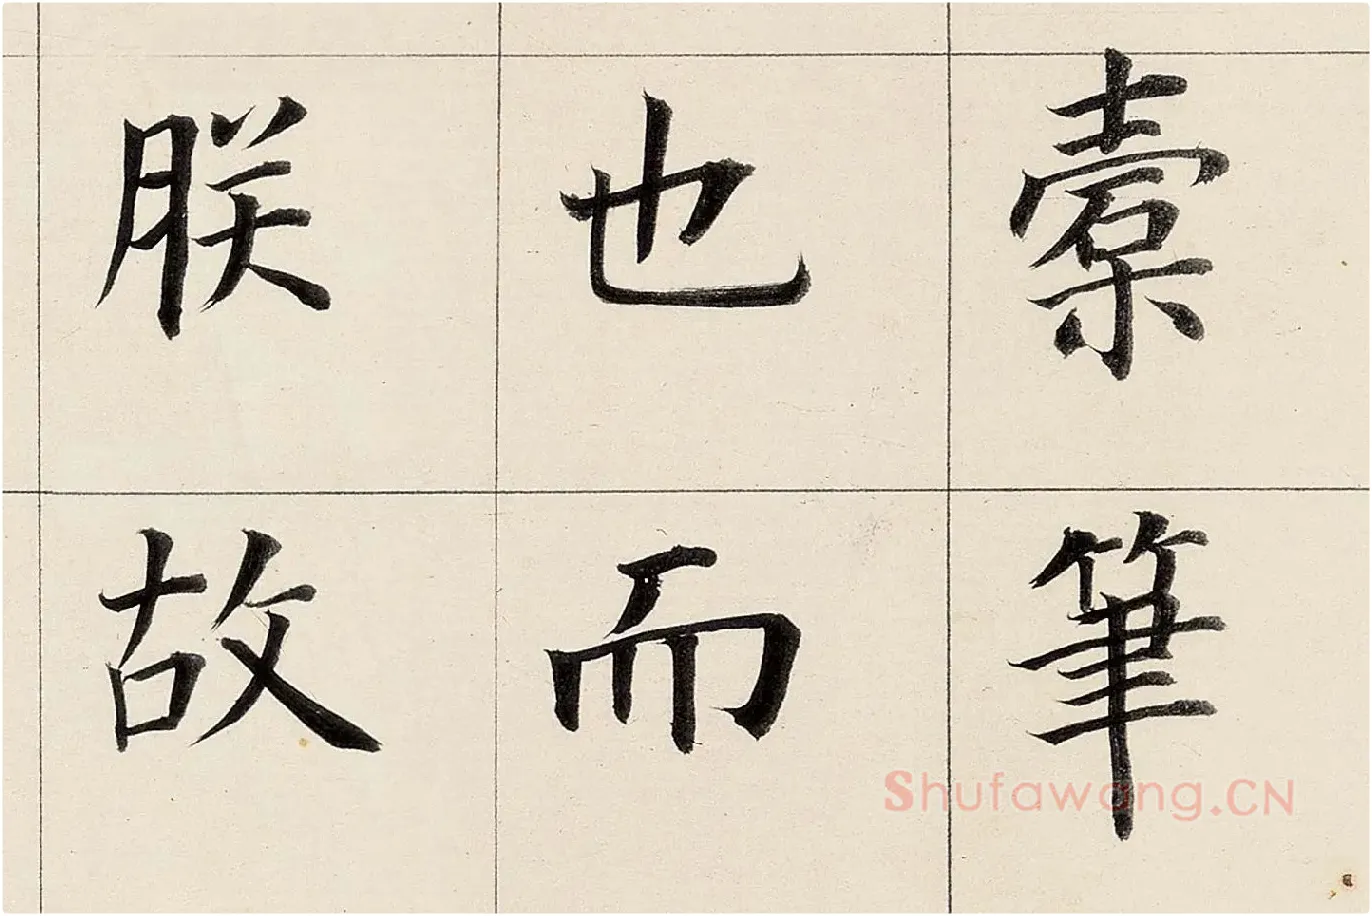 槖筆
也而
朕故
Shufawang.CN